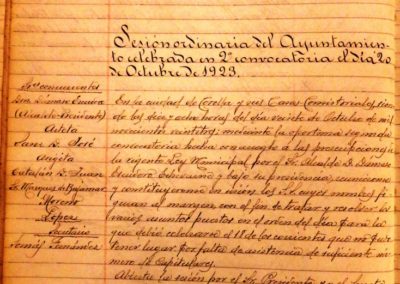 Sesión ordinaria del Ayuntamien-
to celebrada en 2ª convocatoria el día 20
de Octubre de 1923.
Sres concurrentes
Don Dámaso
(Alcalde Presidente)
D. José
D. Juan
Marqués de Bajamar
Moreno
López
Secretario
Tomás
En la ciudad de y sus Casas Consistoriales, sien-
do las diez y ocho horas del día veinte de Octubre de mil
novecientos veintitrés; mediante la oportuna segunda
convocatoria hecha con arreglo a las prescripciones de
la vigente Ley Municipal por el Sr. Alcalde D. Dámaso
y bajo su presidencia, reuniéronse
y constituyéronse en sesión los Sres. cuyos nombres fi-
guran al margen, con el fin de tratar y resolver los
varios asuntos puestos en el orden del día para la
que debió celebrarse el 18 de los corrientes que no pu-
do tener lugar por falta de asistencia de suficiente nú-
mero de Capitulares.
Abierta la sesión por el Sr. Presidente